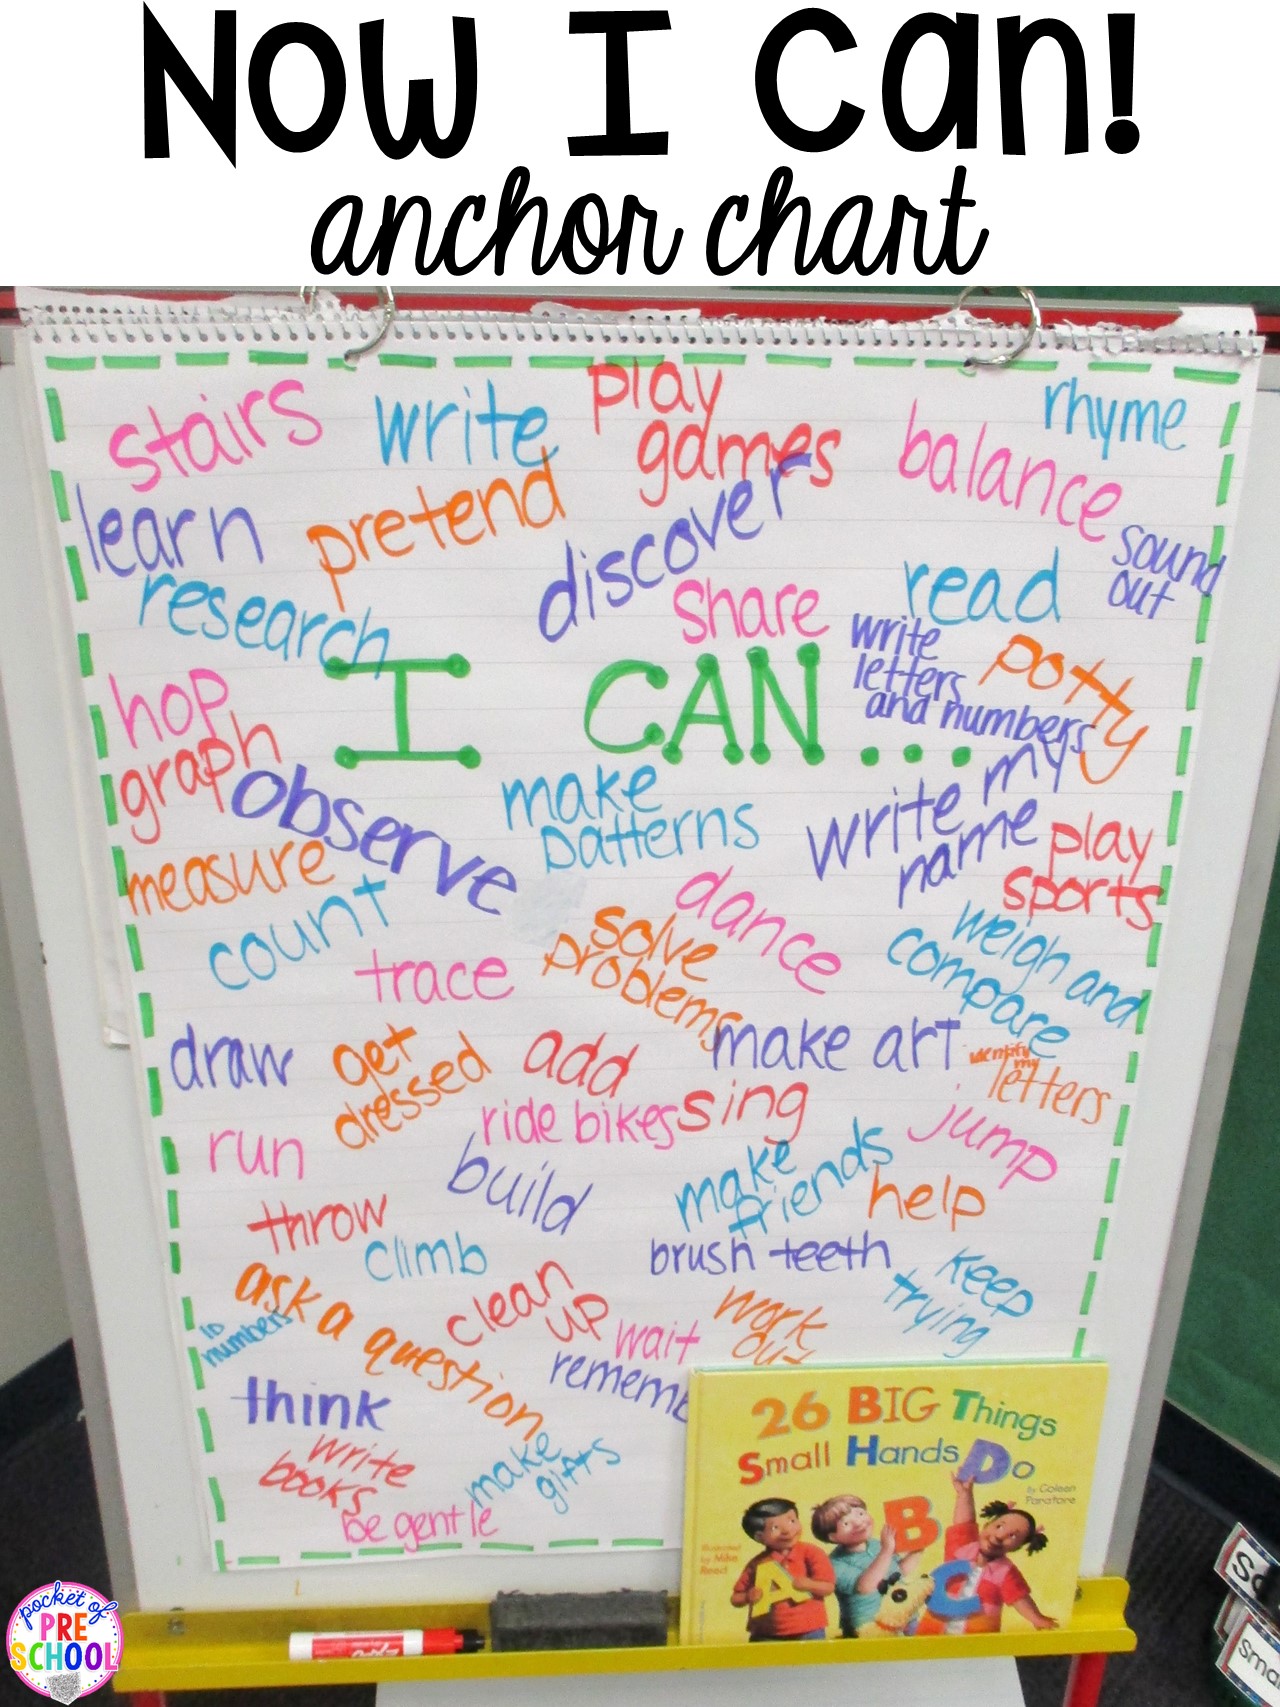 Now I Can!
anchor chart
stairs
write
play
games
rhyme
balance
learn
pretend
discover
sound
out
research
share
read
write
letters
and numbers
potty
I CAN...
hop
graph
observe
make
patterns
write my
name
play
sports
measure
count
dance
trace
solve
problems
weigh and
compare
draw
get
dressed
add
make art
identify
my
letters
ride bikes
sing
run
jump
build
make
friends
help
throw
climb
brush teeth
keep
trying
ask a question
ID
numbers
clean
up
wait
work
out
think
write
books
make
gifts
be gentle
26 BIG Things
Small Hands Do
by Coleen
Paratore
Illustrated
by Mike
Reed
A
B
C
pocket of
PRE
SCHOOL